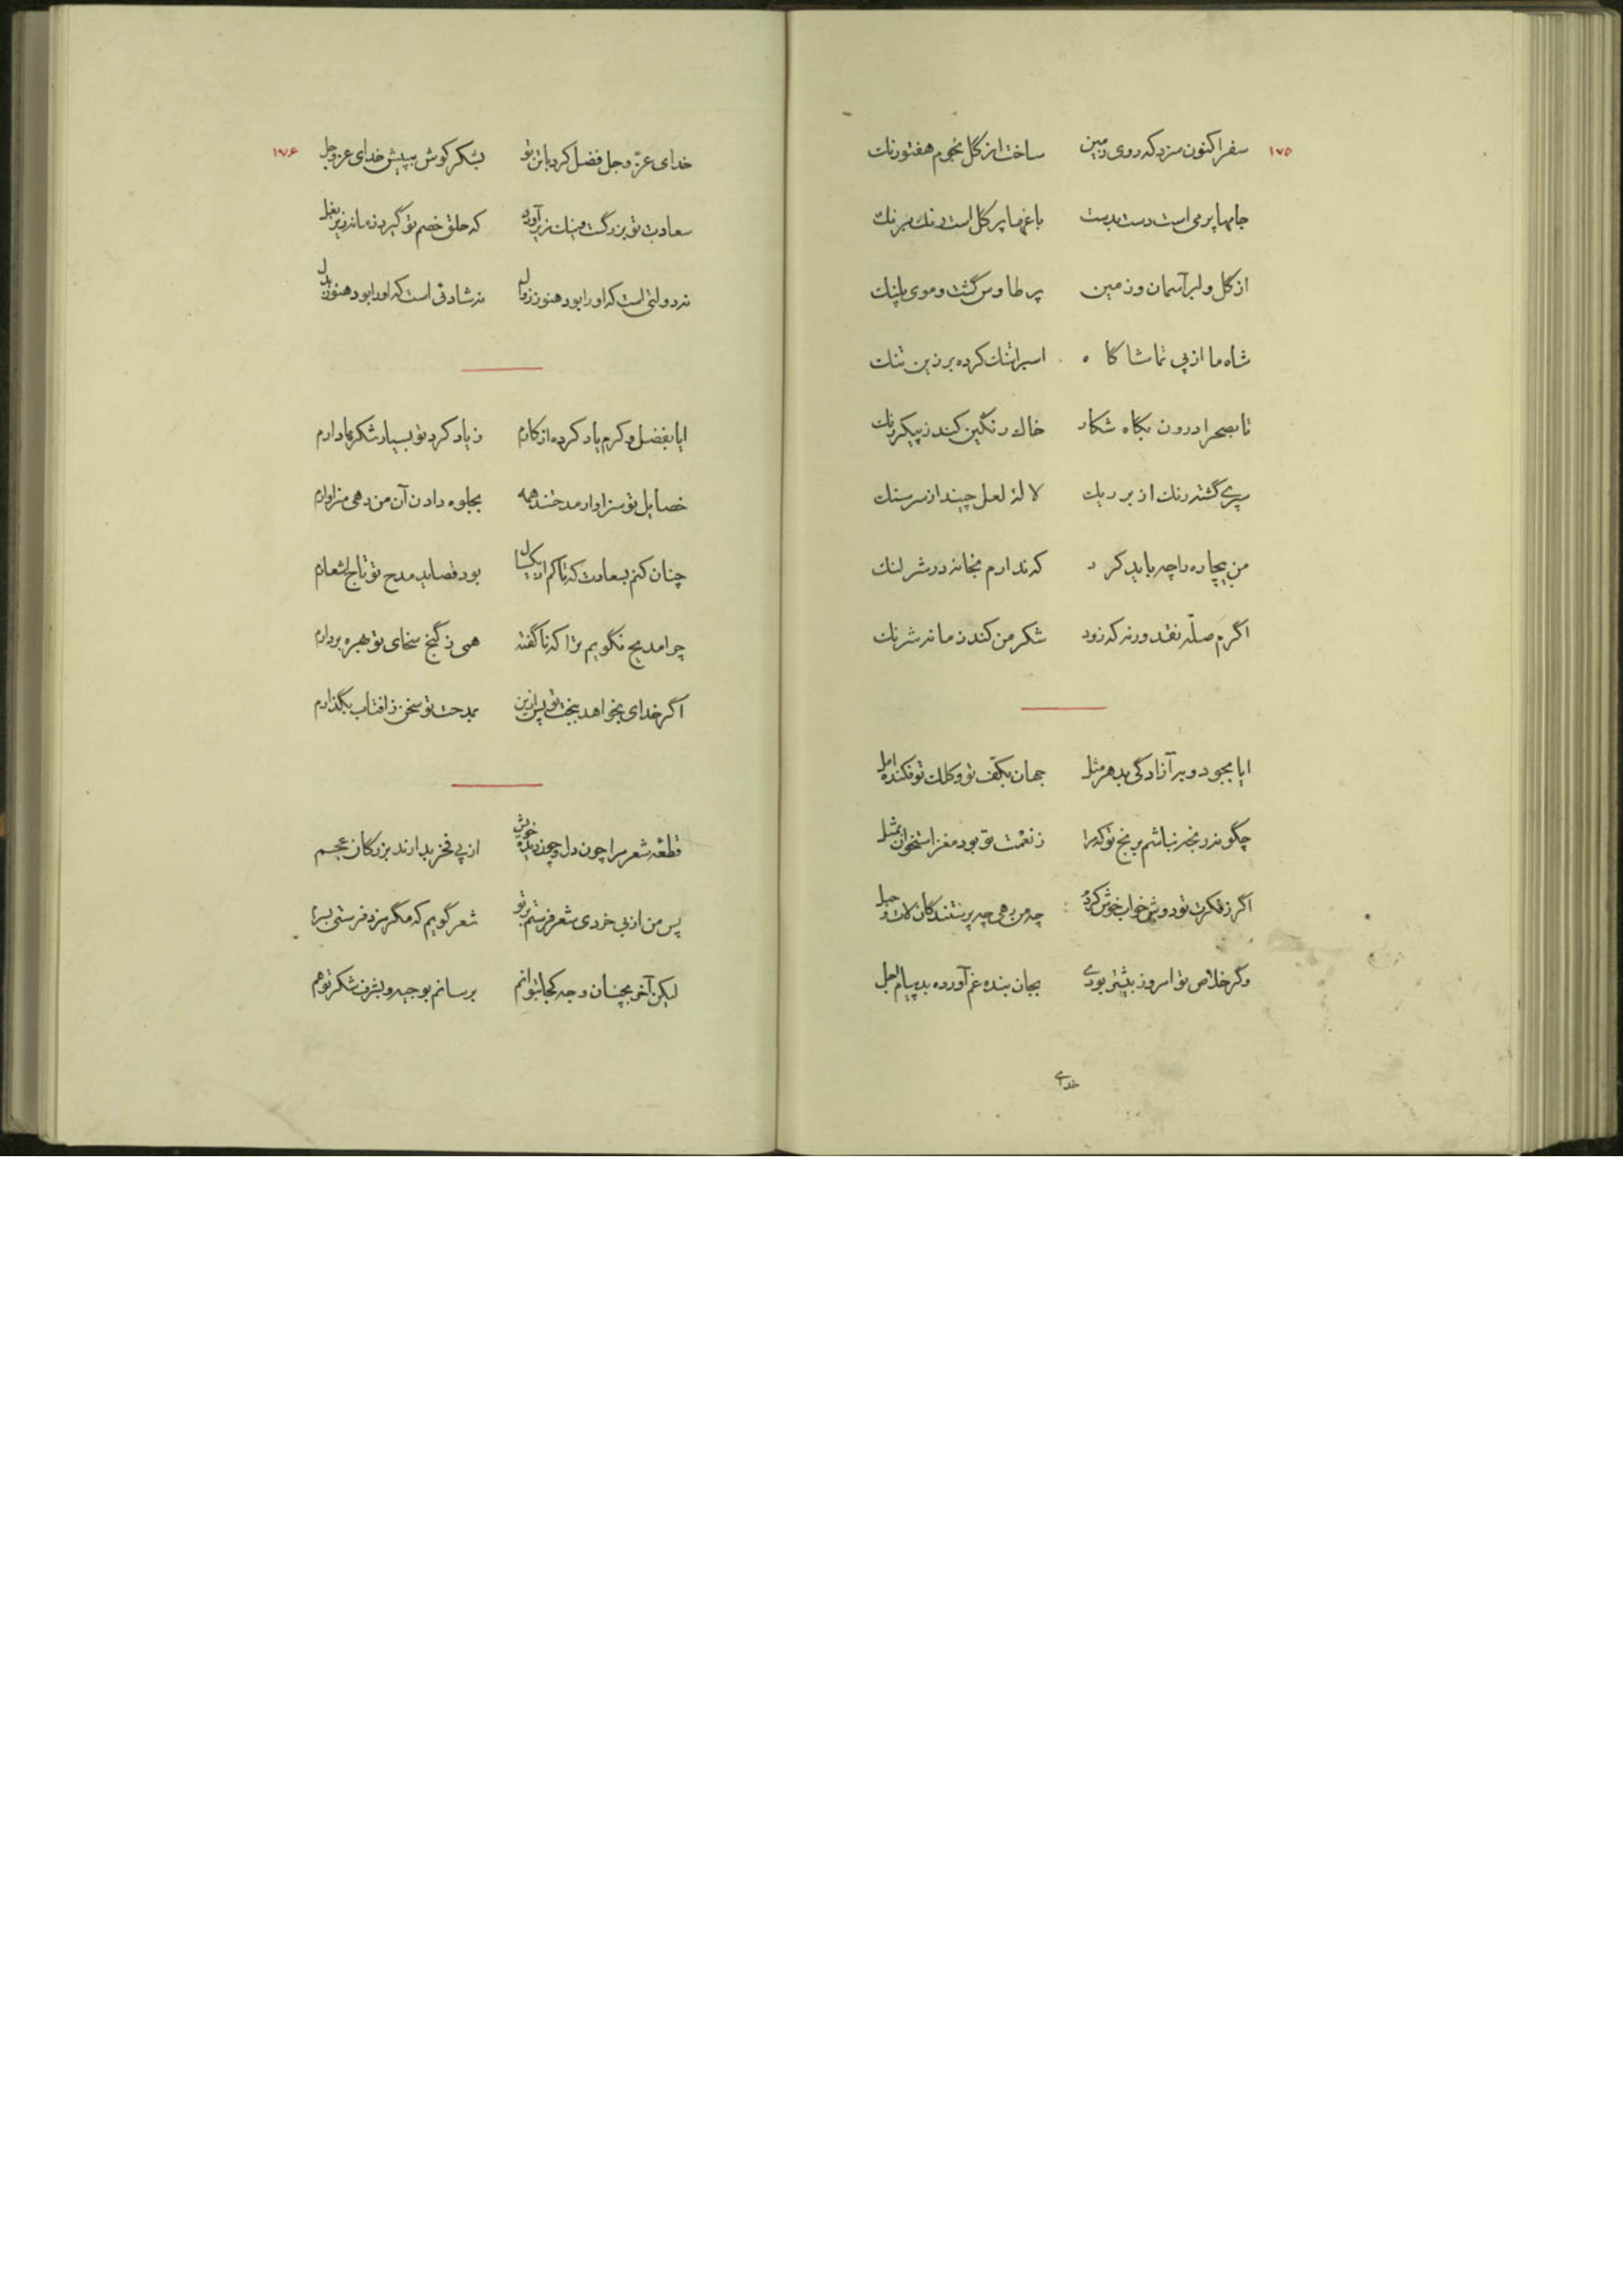 ۱۷۵
سفر اکنون سزد که روی زمین ساخت از گل نجوم هفتورنك
جامها پر می است دست بدست باغها پر کل است رنك برنك
از کل و لبر آسمان و زمین پر طاوس گشت و موی پلنك
شاه ما از پی تماشا کاه اسبرا تنك کرده بر زین تنك
تا بصحرا درون بگاه شکار خاك رنگین کند ز پیکر رنك
سپری گشته رنك از بر ریك لالهٔ لعل چیند از سر سنك
من بیچاره را چه باید کرد که ندارم بخانه در شر لنك
اگرم صله نقد ورنه که زود شکر من کند زمانه شرنك
ایا بجود و بر آزادگی بدهر مثل جهان بکف تو و کلك تو فکنده امل
چگونه رنجه نباشم برنج تو که مرا ز نعمت تو بود مغز استخوان بمثل
اگر ز فکرت تو دوش خواب خوش کردم چه من رهی چه پرستندکان لات و هبل
وگر خلاص تو امروز بیشتر بودی بجان بنده غم آورده بد پیام اجل
خدای
۱۷۶
خدای عزّ و جل فضل کرد با تن تو بشکر کوش بپیش خدای عز و جل
سعادت تو بزرگست و نیك نزیر آورد که حلق خصم تو گیرد زمانه زیر بغل
نه دولتی است که او را بود هنوز زوال نه شادئی است که او را بود هنوز بدل
ایا بفضل و کرم یاد کرده از کارم ز یاد کرد تو بسیار شکرها دارم
خصایل تو سزاوار مدحتند همه بجلوه دادن آن من رهی سزاوارم
چنان کنم بسعادت که تا کم از یکسال بود قصاید مدح تو تاج اشعارم
چرا مدیح نگویم ترا که ناگفته همی ز گنج سخای تو بهره بردارم
اگر خدای بخواهد ببخت تو پس ازین بمدحت تو سخن ز افتاب بگذارم
قطعهٔ شعر مرا چون دل و چون دیدهٔ خویش از پی فخر بدارند بزرگان عجم
پس من از بی خردی شعر فرستم بر تو شعر گویم که مگر مزد فرستی برم
لیکن آخر بچنان وجه کجا بتوانم برسانم بوجیه و بشرف شکر تو هم